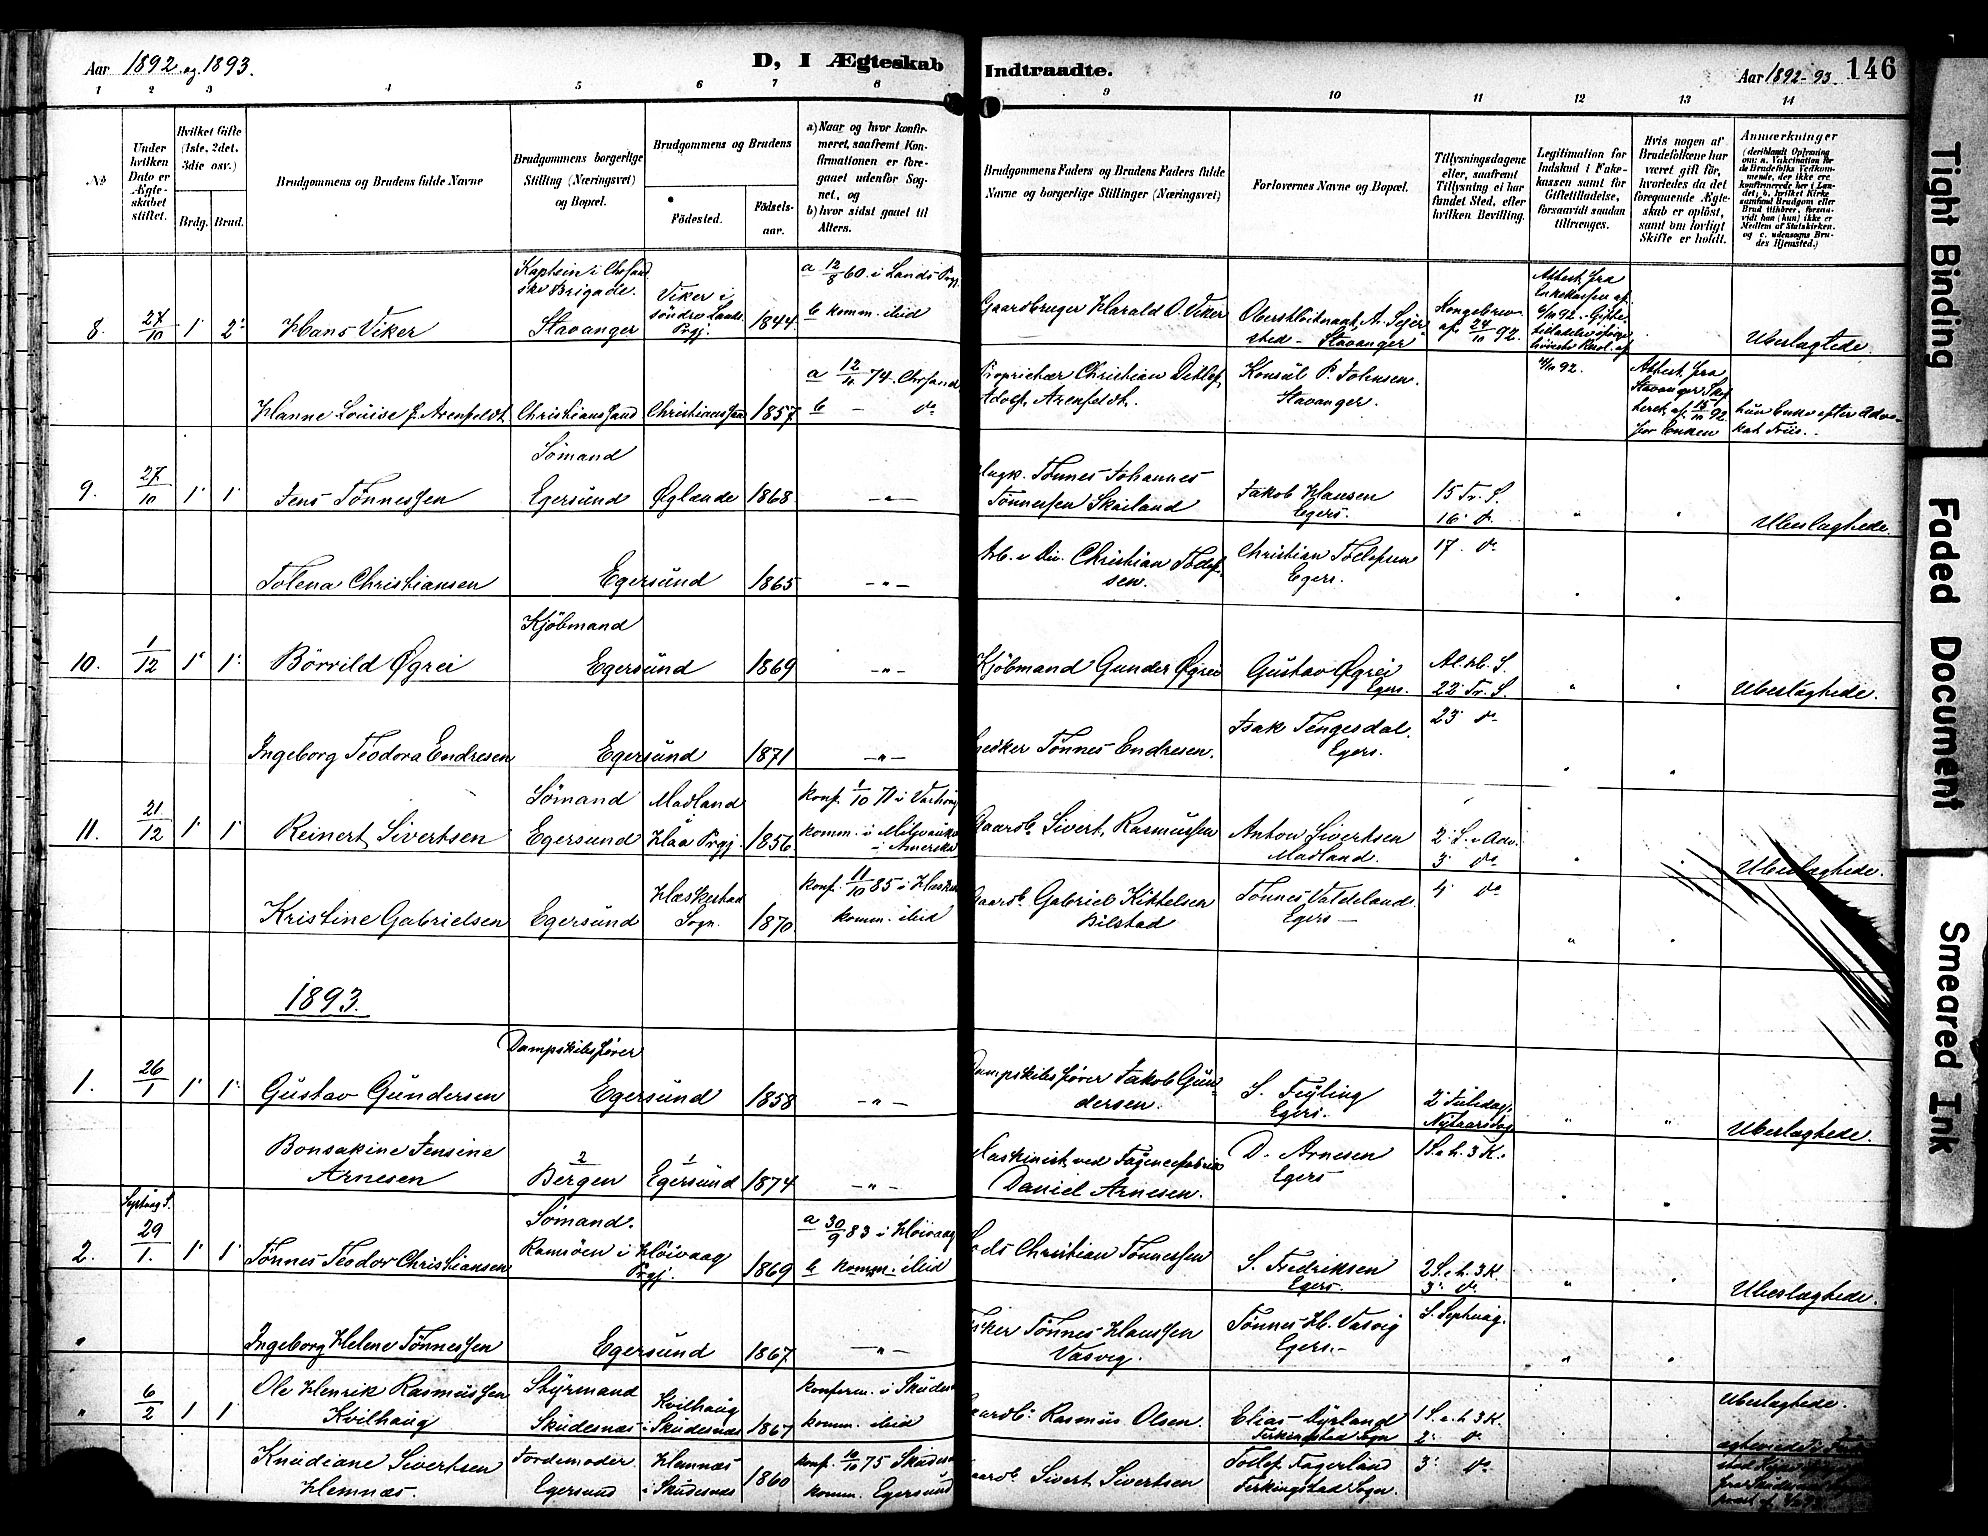 Aar 1892 og 1893.
D, I Ægteskab Indtraadte.
Aar 1892-93.
146
1 2 3 4 5 6 7 8 9 10 11 12 13 14
No
Under hvilken Dato er Ægteskabet stiftet.
Hvilket Gifte (1ste, 2det, 3die osv.)
Brdg. Brud.
Brudgommens og Brudens fulde Navne
Brudgommens borgerlige Stilling (Næringsvei) og Bopæl.
Brudgommens og Brudens
Födested.
Födsels-aar.
a) Naar og hvor konfirmeret, saafremt Konfirmationen er foregaaet udenfor Sognet, og
b) hvor sidst gaaet til Alters.
Brudgommens Faders og Brudens Faders fulde Navne og borgerlige Stillinger (Næringsvei)
Forlovernes Navne og Bopæl.
Tillysningsdagene eller, saafremt Tillysning ei har fundet Sted, efter hvilken Bevilling.
Legitimation for Indskud i Enkekassen samt for Giftetilladelse, forsaavidt saadan tiltrænges.
Hvis nogen af Brudefolkene har været gift för, hvorledes da det foregaaende Ægteskab er oplöst, samt om lovligt Skifte er holdt.
Anmærkninger
8. 27/10 1 2 Hans Viker
Stavanger
Viker i söndre Lands Prgj. 1844
a 12/8 60 i Lands Prgj.
b komm. ibid
Gaardbruger Harald O. Viker
Oberstløitnant A. Sejersted - Stavanger
Kongebrev af 24/10 92.
Attest fra Enkekassen af
Uberlagtede.
Hanne Louise f. Arenfeldt. Christianssand Christianssand 1857
a 12/11 74. Chrsand
b - do
Proprietær Christian Ditlef Adolf Arenfeldt.
Konsul P. Johnsen. Stavanger.
Attest fra Stavanger
for Enken
hun Enke efter Advokat Friis.
9. 27/10 1 1 Jens Tönnessen
Sømand Egersund Øglænde 1868 -"-
Tønnes Johannes Tønnessen Skailand
Jakob Hansen Egers.
15 Tr. S.
16 do
Uberlagtede.
Tolena Christiansen Egersund 1865 -"-
Arb. v. Div. Christian Tollefsen.
Christian Tollefsen Egers.
17. do
10. 1/12 1 1 Börrild Øgrei
Kjöbmand Egersund 1869 -"-
Kjöbmand Gunder Øgrei
Gustav Øgrei Egers.
Al. H. S.
22 Tr. S.
Uberlagtede.
Ingeborg Teodora Endresen Egersund 1871 -"-
Tönnes Endresen.
Isak Tengesdal. Egers.
23 do
11. 21/12 1 1 Reinert Sivertsen
Sømand Egersund
Madland Haa Prgj. 1856
konf. 1/10 71 i Varhoug
komm. i Milwauke i Amerika
Gaardb. Sivert Rasmussen
Anton Sivertsen Madland.
2 S. i Adv.
3 do
Uberlagtede.
Kristine Gabrielsen Egersund
Heskestad Sogn. 1870
konf. 11/10 85 i Heskes
komm. ibid
Gaardb. Gabriel Kittelsen Bilstad
Tönnes Vatdeland. Egers -
4 do
1893.
1. 26/1 1 1 Gustav Gundersen
Dampskibsfører Egersund 1858 -"-
Dampskibsfører Jakob Gundersen.
S. Feyling Egers.
2 Juledag, Nytaarsdag
Uberlagtede.
Bonsakine Jensine Arnesen
2 Bergen 1 Egersund 1874 -"-
Maskinist ved Fagencefabrik Daniel Arnesen.
D. Arnesen Egers
1 S. e. h. 3 K.
Septuag S.
2. 29/1. 1 1 Tønnes Teodor Christiansen
Sømand. Ramsöen i Høivaag Prgj. 1869
a 30/9 83 i Høivaag
b komm. ibid
Lods Christian Tönnessen
S. Fredriksen Egers.
2 S. e. h. 3 K.
3 do
Uberlagtede.
Ingeborg Helene Tönnessen Egersund 1867 -"-
Tønnes Hanssen Vasvig.
Tönnes H. Vasvig Egers.-
S. Septuag.
6/2 1 1 Ole Henrik Rasmussen Kvilhaug
Styrmand Skudesnæs
Kvilhaug i Skudesnæs 1867
konferm. i Skudes
komm. ibid
Gaardb. Rasmus Olsen.
Elias Dyrland Ferkingstad Sogn
1 S. e. h. 3 K.
2 do
Uberlagtede.
Knudiane Sivertsen Hemnæs.
Jordemoder. Egersund
Hemnæs i Skudesnæs 1860
konf. 10/10 75 Skudesn
komm. Egersund
Gaardb. Sivert Sivertsen
Tollef Fagerland Ferkingstad Sogn.
3 do
Tight Binding
Faded Document
Smeared Ink